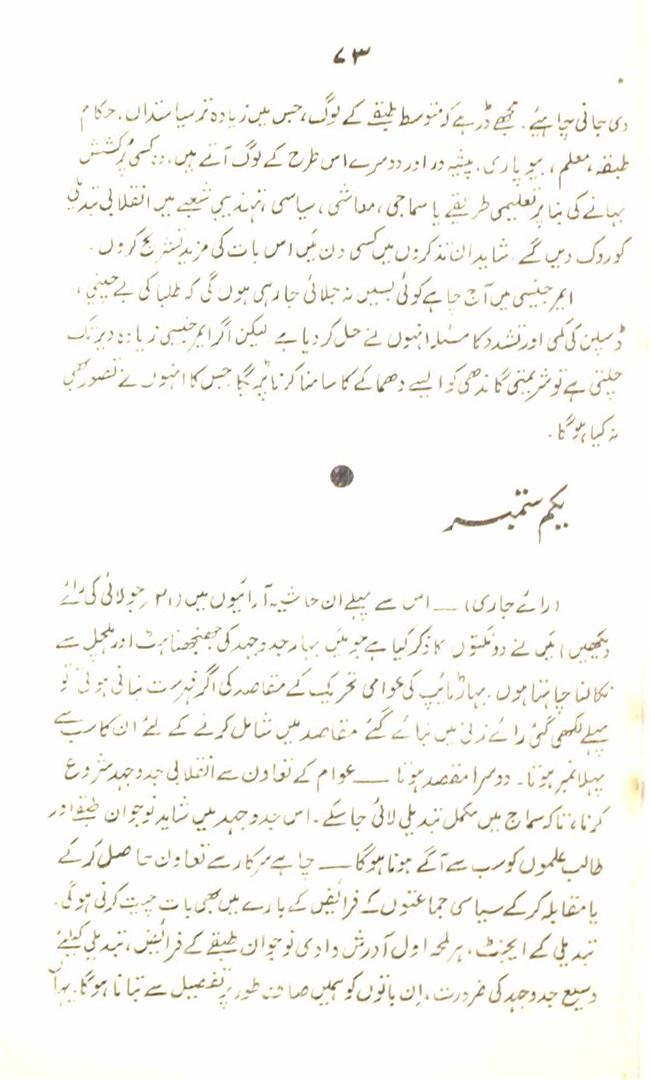 ۷۳
دی جانی چاہیئے۔ مجھے ڈر ہے کہ متوسط طبقے کے لوگ، جس میں زیادہ تر سیاستداں، حکام
طبقہ، معلم، بیوپاری، پیشہ ور اور دوسرے اس طرح کے لوگ آتے ہیں، وہ کسی پُرکشش
بہانے کی بنا پر تعلیمی طریقے یا سماجی، معاشی، سیاسی، تہذیبی شعبے میں انقلابی تبدیلی
کو روک دیں گے۔ شاید ان تذکروں میں کسی دن میں اس بات کی مزید تشریح کروں۔
ایمرجینسی میں آج چاہے کوئی بسیں نہ جلائی جا رہی ہوں گی کہ طلبا کی بے چینی،
ڈسپلن کی کمی اور تشدد کا مسئلہ انہوں نے حل کر دیا ہے لیکن اگر ایمرجینسی زیادہ دیر تک
چلتی ہے تو شریمتی گاندھی کو ایسے دھماکے کا سامنا کرنا پڑیگا جس کا انہوں نے تصور بھی
نہ کیا ہوگا۔
یکم ستمبر
(رائے جاری) — اس سے پہلے ان حاشیہ آرائیوں میں (۲۱ جولائی کی رائے
دیکھیں) میں نے دو نکتوں کا ذکر کیا ہے جو میں بہار جدوجہد کی جھنجھناہٹ اور ہلچل سے
نکالنا چاہتا ہوں۔ بہار ٹائپ کی عوامی تحریک کے مقاصد کی اگر فہرست بنانی ہوتی تو
پہلے لکھی گئی رائے زنی میں بتائے گئے مقاصد میں شامل کرنے کے لئے ان کا سب سے
پہلا نمبر ہوتا۔ دوسرا مقصد ہوتا — عوام کے تعاون سے انقلابی جدوجہد شروع
کرنا، تاکہ سماج میں مکمل تبدیلی لائی جا سکے۔ اس جدوجہد میں شاید نوجوان طبقے اور
طالب علموں کو سب سے آگے ہونا ہوگا — چاہے سرکار سے تعاون حاصل کر کے
یا مقابلہ کر کے سیاسی جماعتوں کے فرائض کے بارے میں بھی بات چیت کرنی ہوگی۔
تبدیلی کے ایجنٹ، ہر لمحہ اول آدرش وادی نوجوان طبقے کے فرائض، تبدیلی کیلئے
وسیع جدوجہد کی ضرورت، ان باتوں کو ہمیں صاف طور پر تفصیل سے بتانا ہوگا۔ یہاں